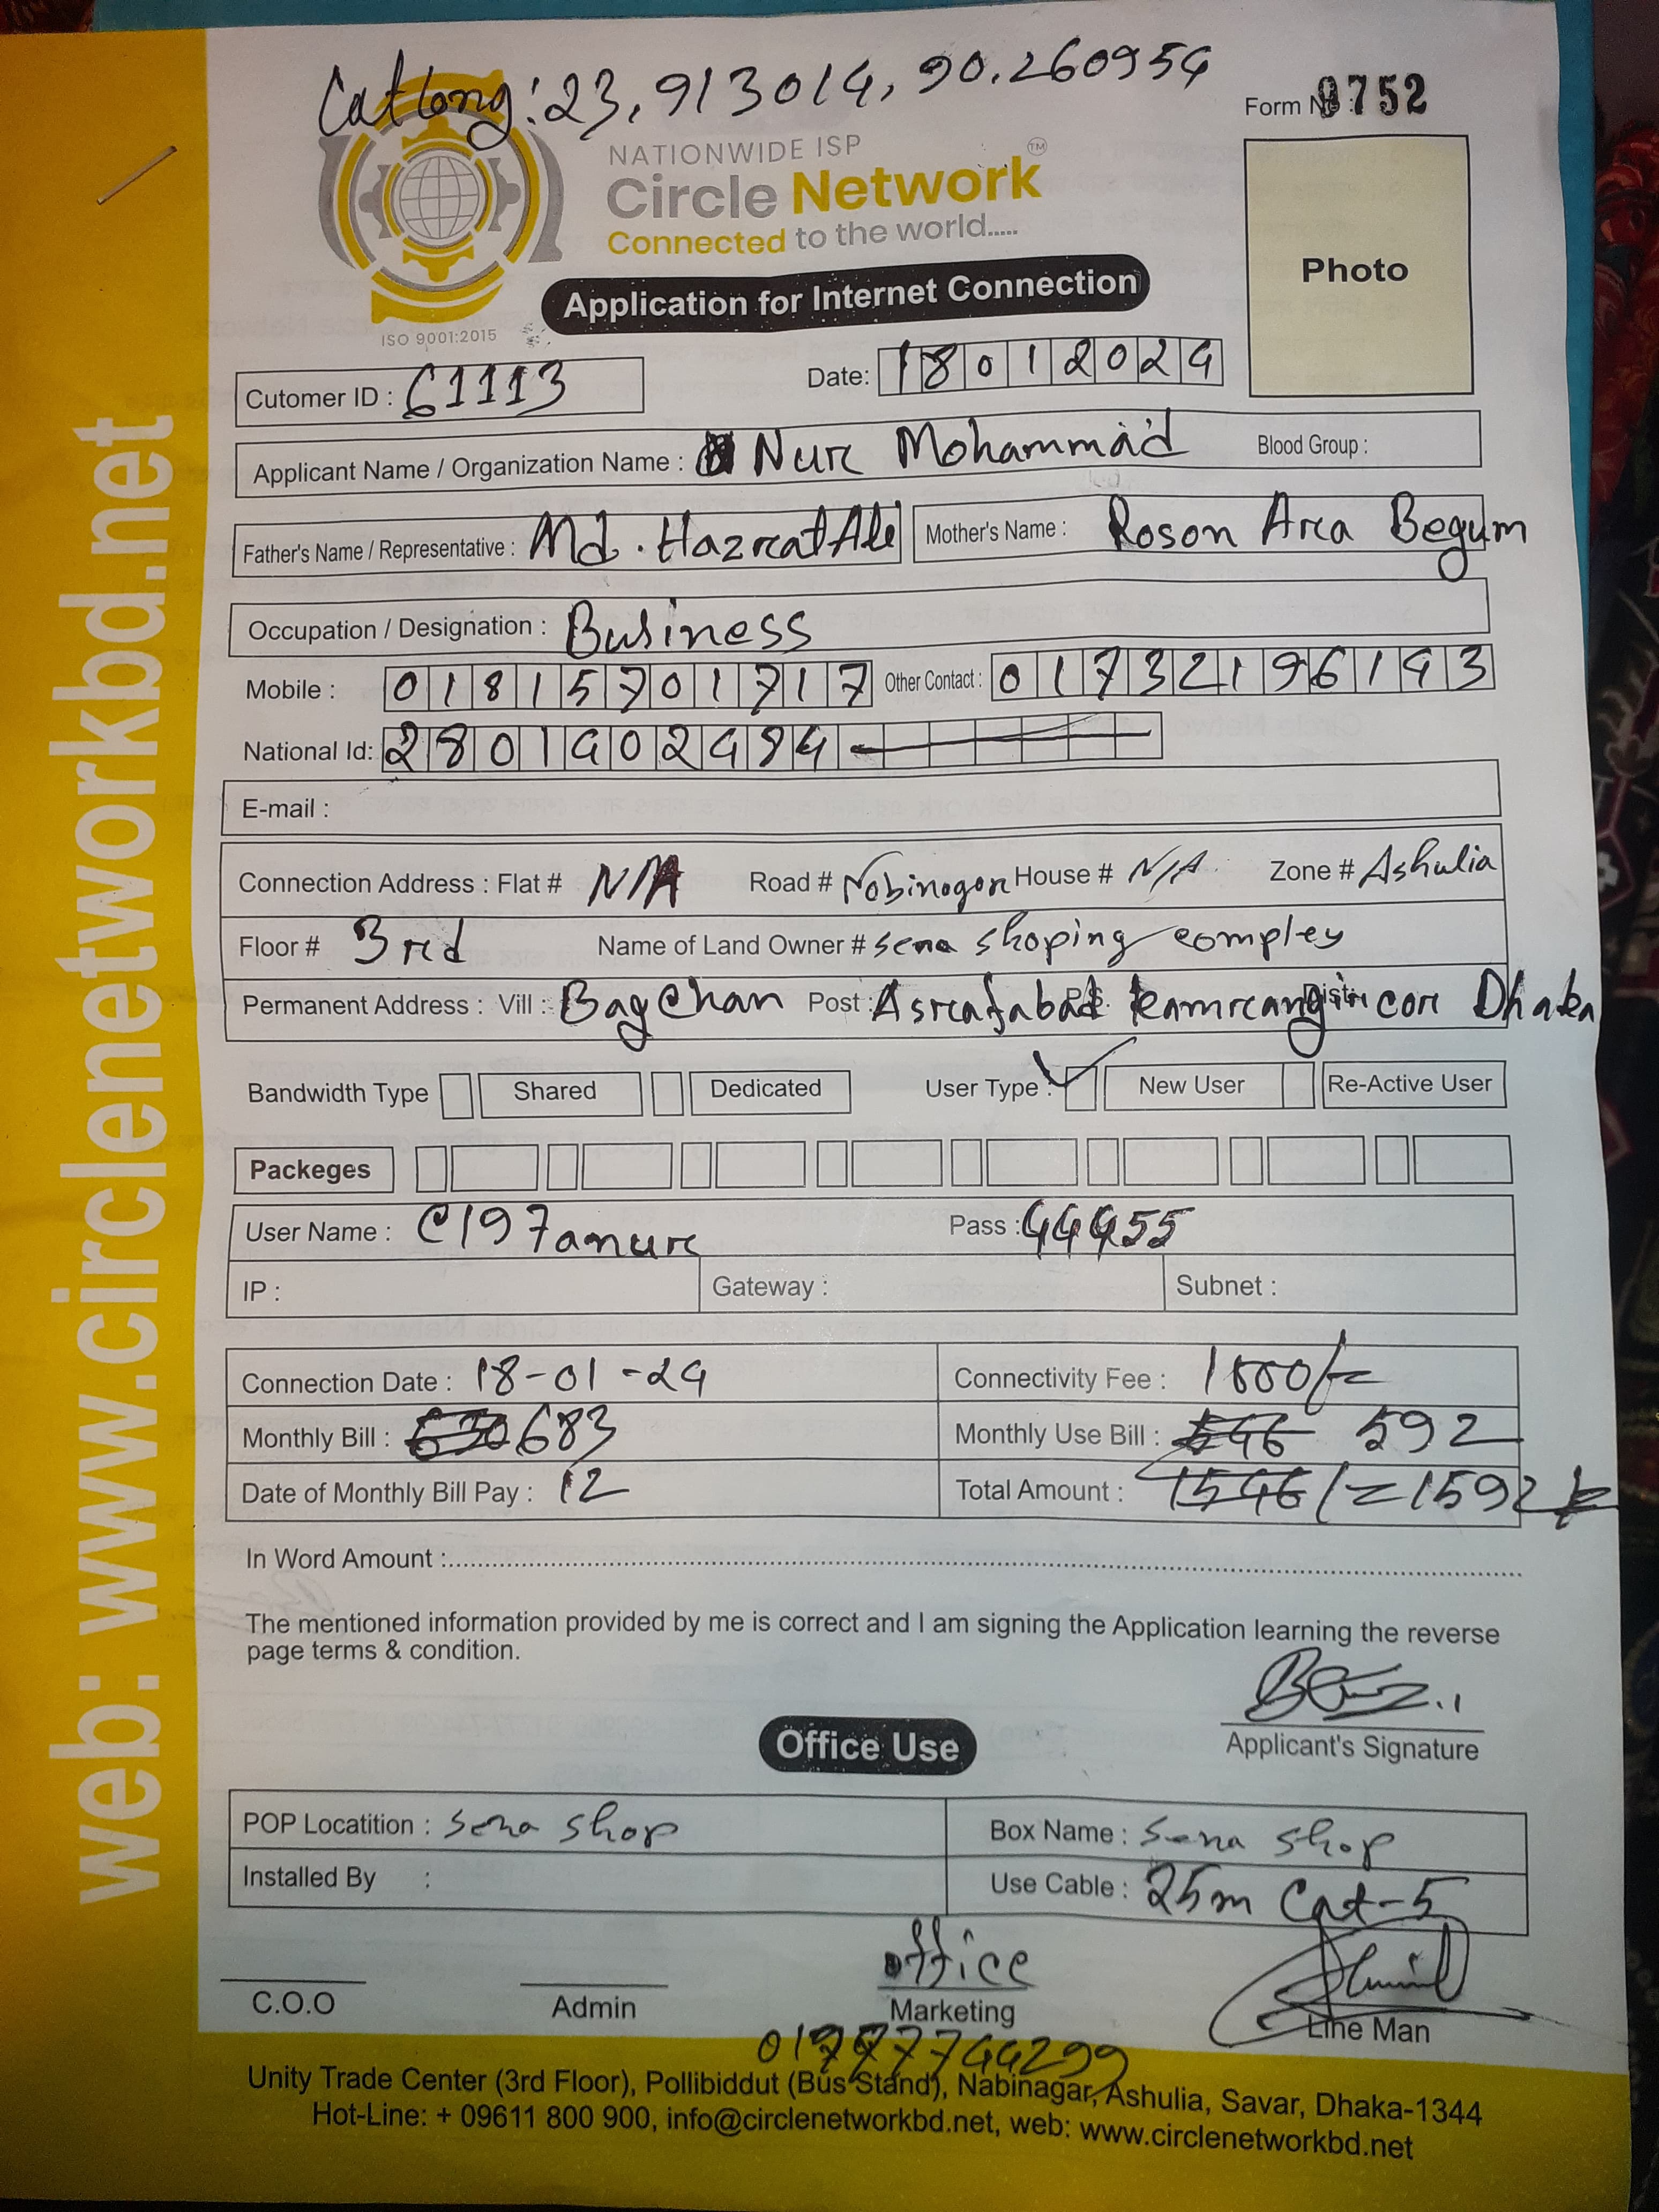 Catlong: 23.913014, 90.260954
Form No: 9752
NATIONWIDE ISP
Circle Network™
Connected to the world.....
ISO 9001:2015
Application for Internet Connection
Photo
Cutomer ID : 61113
Date: 18012024
Applicant Name / Organization Name : Nur Mohammad Blood Group :
Father's Name / Representative : Md. Hazrat Ali Mother's Name : Roson Ara Begum
Occupation / Designation : Business
Mobile : 01815701717 Other Contact : 01732196143
National Id: 2801402484
E-mail :
Connection Address : Flat # N/A Road # Nobinogor House # N/A Zone # Ashulia
Floor # 3rd Name of Land Owner # Sena shoping complex
Permanent Address : Vill : Bagchan Post : Asrafabad P.S. kamrangir cor Dist: Dhaka
Bandwidth Type Shared Dedicated User Type : New User Re-Active User
Packeges
User Name : C197anur Pass : 44455
IP : Gateway : Subnet :
Connection Date : 18-01-24 Connectivity Fee : 1000/=
Monthly Bill : 630 683 Monthly Use Bill : 546 592
Date of Monthly Bill Pay : 12 Total Amount : 1546/= 1592
In Word Amount :
The mentioned information provided by me is correct and I am signing the Application learning the reverse
page terms & condition.
Applicant's Signature
Office Use
POP Locatition : Sena shop Box Name : Sena shop
Installed By : Use Cable : 25m Cat-5
office
C.O.O Admin Marketing Line Man
Unity Trade Center (3rd Floor), Pollibiddut (Bus Stand), Nabinagar, Ashulia, Savar, Dhaka-1344
Hot-Line: + 09611 800 900, info@circlenetworkbd.net, web: www.circlenetworkbd.net
web: www.circlenetworkbd.net